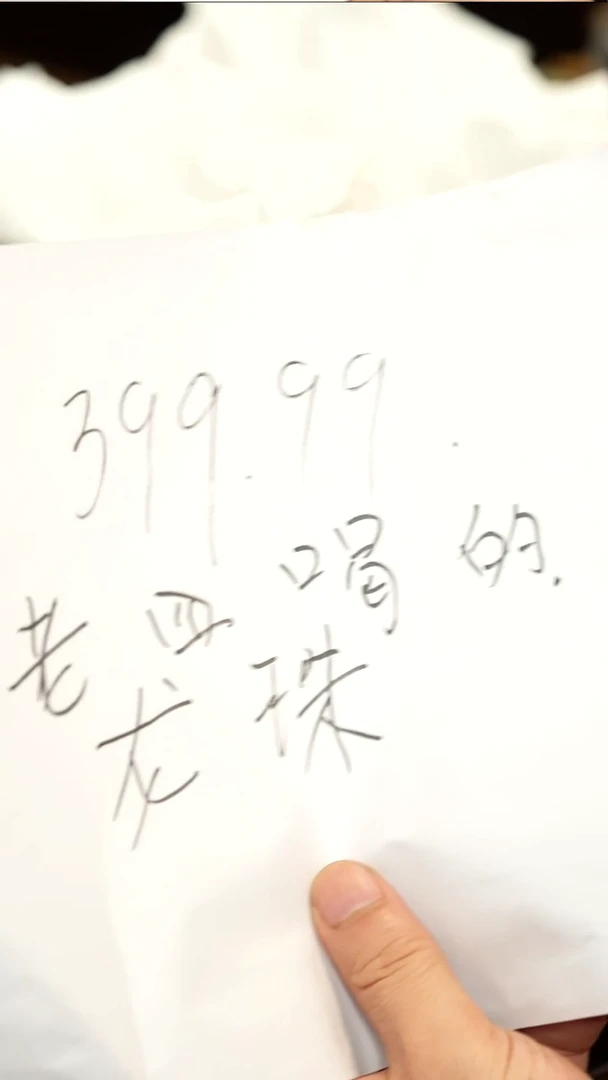 399.99.
老四喝的.
龙珠